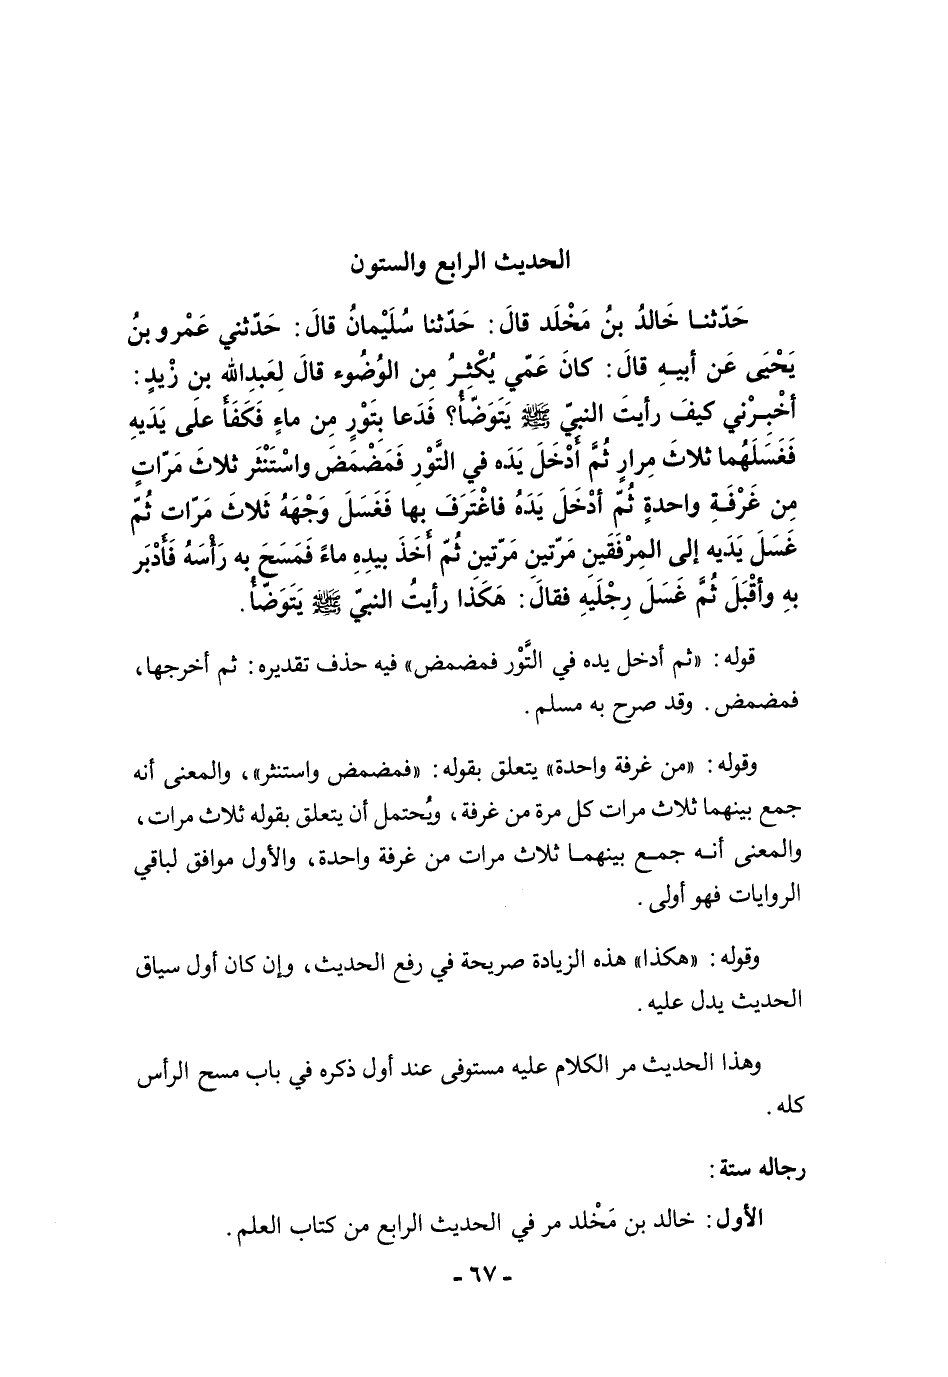 الحديث الرابع والستون
حَدّثنـا خَالدُ بنُ مَخْلَد قالَ: حَدّثنا سُلَيْمانُ قالَ: حَدّثني عَمْرو بنُ
يَحْيَى عَن أبيـهِ قالَ: كانَ عَمّي يُكْثِـرُ مِن الوُضُوء قالَ لِعَبدِالله بن زْيدٍ:
أخْبِـرْني كيفَ رأيتَ النبيّ ﷺ يَتَوَضّأُ؟ فَدَعا بتَوْرٍ مِن ماءٍ فَكَفَأَ علَى يَدَيهِ
فَغَسَلَهُما ثلاثَ مِرارٍ ثُمَّ أَدْخَلَ يَدَه في التَّوْرِ فَمَضْمَضَ واسْتَنْثَر ثلاثَ مَرّاتٍ
مِن غَرْفَـةِ واحدةٍ ثُمّ أدْخَلَ يَدَهُ فاغْتَرَفَ بها فَغَسَلَ وَجْهَهُ ثَلاثَ مَرّات ثُمّ
غَسَلَ يَدَيه إلى المِرْفَقَين مَرّتين مَرّتين ثُمّ أَخَذَ بيدِهِ ماءً فَمَسَحَ به رَأْسَهُ فَأَدْبَر
بهِ وأقْبَلَ ثُمَّ غَسَلَ رِجْلَيهِ فقالَ: هَكَذا رأيتُ النبيّ ﷺ يَتَوَضّأُ.
قوله: «ثم أدخل يده في التَّوْر فمضمض» فيه حذف تقديره: ثم أخرجها،
فمضمض. وقد صرح به مسلم.
وقوله: «من غرفة واحدة» يتعلق بقوله: «فمضمض واستنثر»، والمعنى أنه
جمع بينهما ثلاث مرات كل مرة من غرفة، ويُحتمل أن يتعلق بقوله ثلاث مرات،
والمعنى أنـه جمـع بينهمـا ثلاث مرات من غرفة واحدة، والأول موافق لباقي
الروايات فهو أولى.
وقوله: «هكذا» هذه الزيادة صريحة في رفع الحديث، وإن كان أول سياق
الحديث يدل عليه.
وهذا الحديث مر الكلام عليه مستوفى عند أول ذكره في باب مسح الرأس
كله.
رجاله ستة:
الأول: خالد بن مَخْلد مر في الحديث الرابع من كتاب العلم.
- ٦٧ -